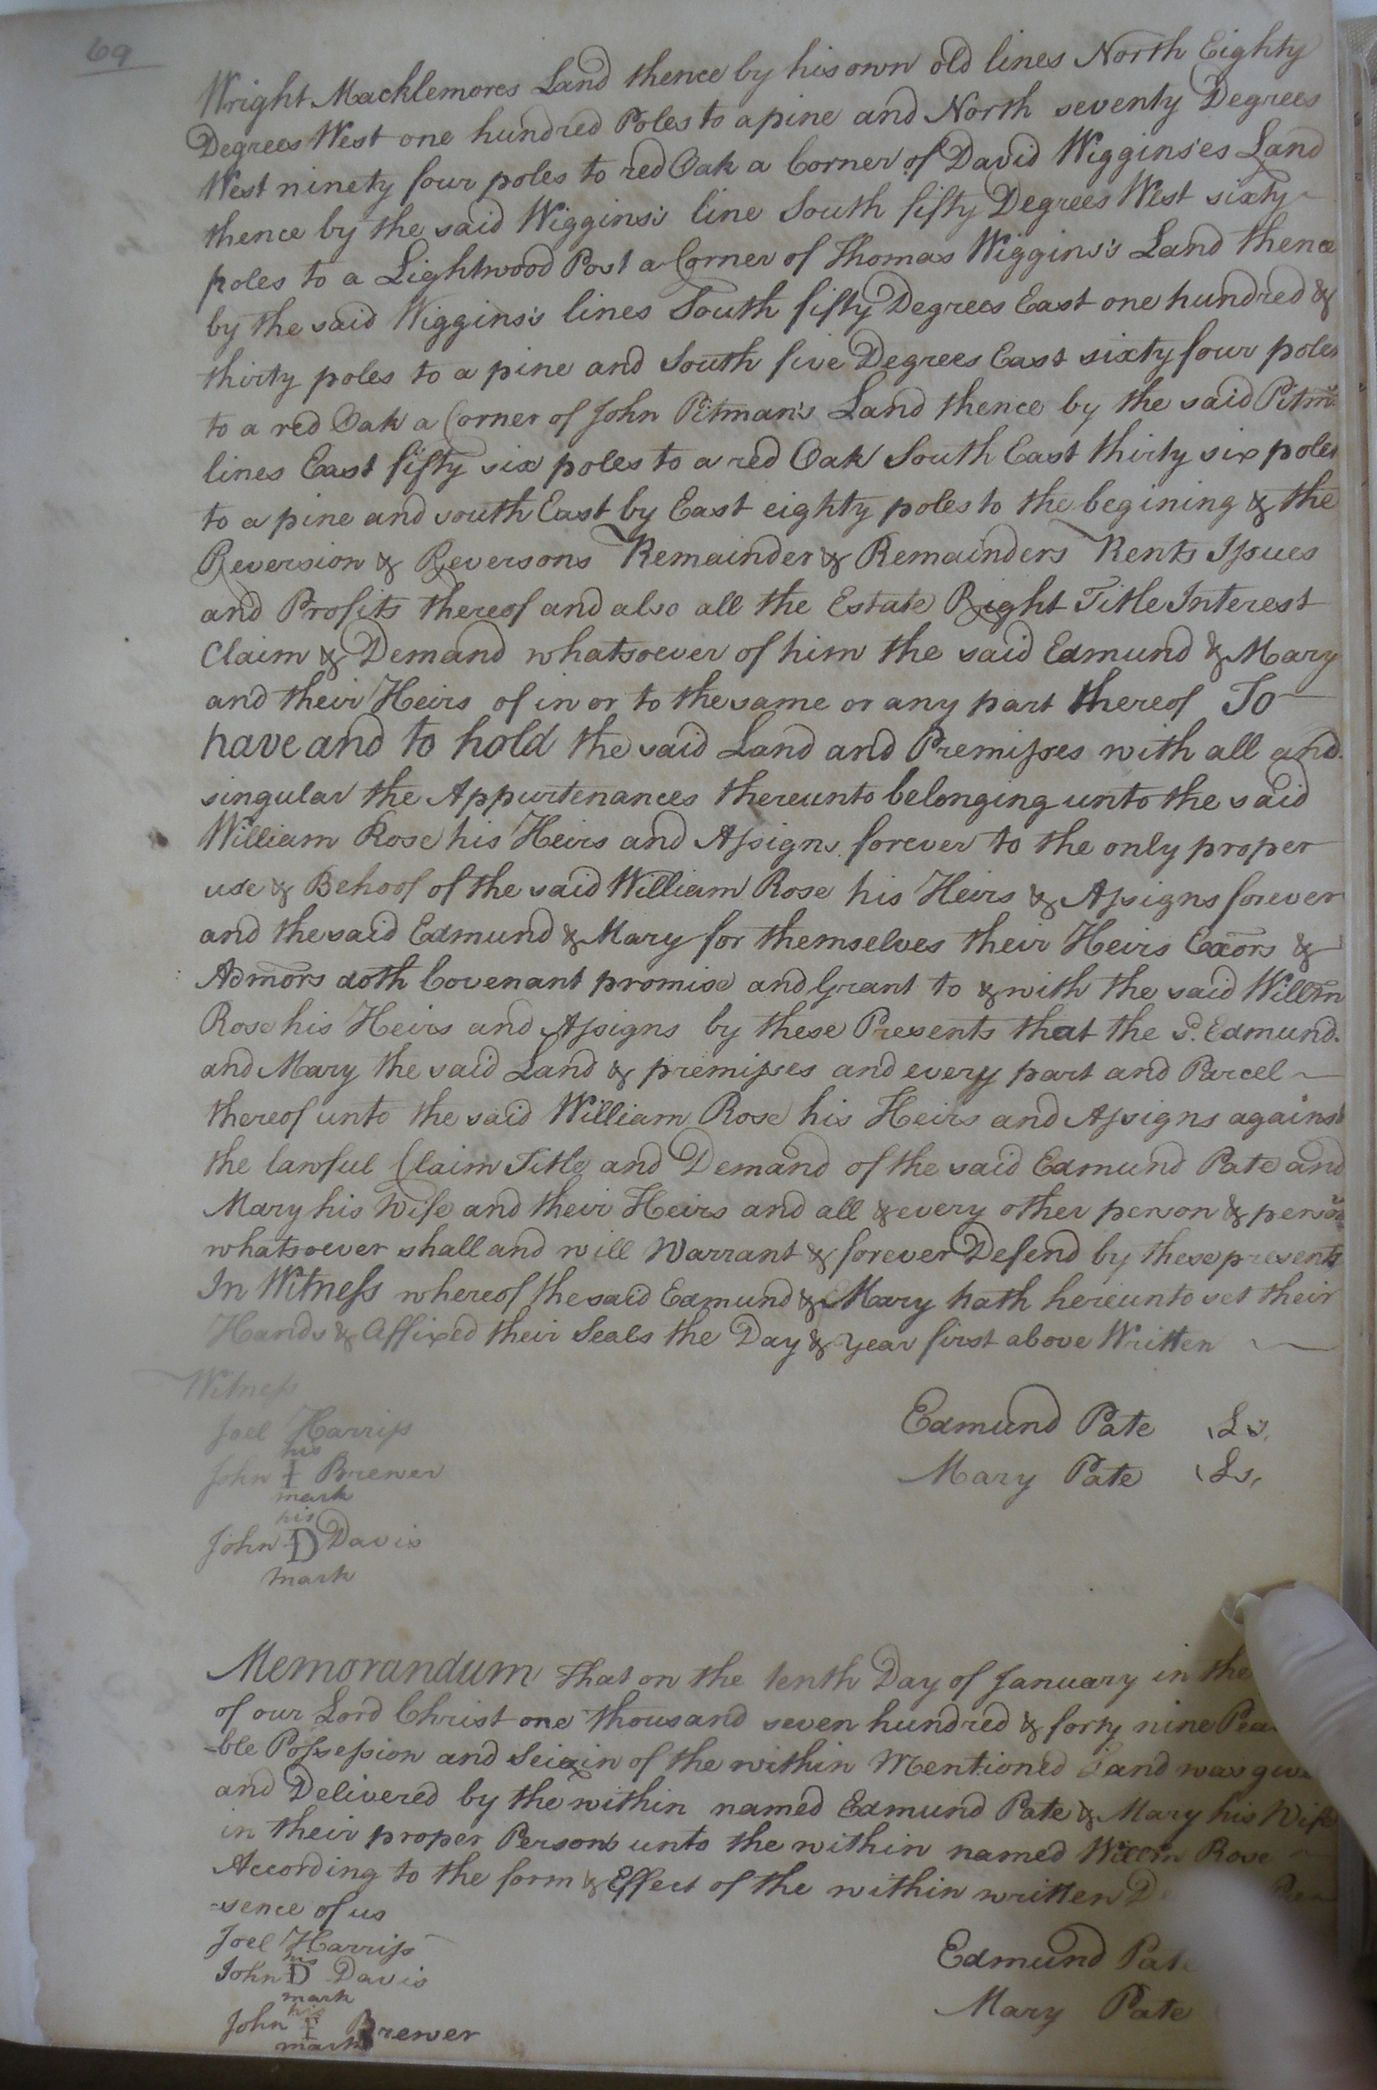 69
Wright Macklemores Land thence by his own old lines North Eighty
Degrees West one hundred Poles to a pine and North seventy Degrees
West ninety four poles to red Oak a Corner of David Wiggins'es Land
thence by the said Wiggins's line South fifty Degrees West sixty
poles to a Lightwood Post a Corner of Thomas Wiggins's Land thence
by the said Wiggins's lines South fifty Degrees East one hundred &
thirty poles to a pine and South five Degrees East sixty four poles
to a red Oak a Corner of John Pitman's Land thence by the said Pitm:
lines East fifty six poles to a red Oak South East thirty six poles
to a pine and south East by East eighty poles to the begining & the
Reversion & Reversons Remainder & Remainders Rents Issues
and Profits thereof and also all the Estate Right Title Interest
Claim & Demand whatsoever of him the said Edmund & Mary
and their Heirs of in or to the same or any part thereof To
have and to hold the said Land and Premisses with all and
singular the Appurtenances thereunto belonging unto the said
William Rose his Heirs and Assigns forever to the only proper
use & Behoof of the said William Rose his Heirs & Assigns forever
and the said Edmund & Mary for themselves their Heirs Exors &
Admors doth Covenant promise and Grant to & with the said Willm
Rose his Heirs and Assigns by these Presents that the sd. Edmund
and Mary the said Land & premisses and every part and Parcel
thereof unto the said William Rose his Heirs and Assigns against
the lawful Claim Title and Demand of the said Edmund Pate and
Mary his Wife and their Heirs and all & every other person & person
whatsoever shall and will Warrant & forever Defend by these presents
In Witness whereof the said Edmund & Mary hath hereunto set their
Hands & Affixed their Seals the Day & year first above Written
Witness
Joel Harriss
his
John + Brewer
mark
his
John D Davis
mark
Edmund Pate Ls.
Mary Pate Ls,
Memorandum That on the tenth Day of January in the
of our Lord Christ one thousand seven hundred & forty nine Pea
-ble Possession and Seizin of the within Mentioned Land was give
and Delivered by the within named Edmund Pate & Mary his Wife
in their proper Persons unto the within named Willm Rose
According to the form & Effect of the within written
-sence of us
Joel Harriss
his
John D Davis
mark
his
John + Brewer
mark
Edmund Pate
Mary Pate